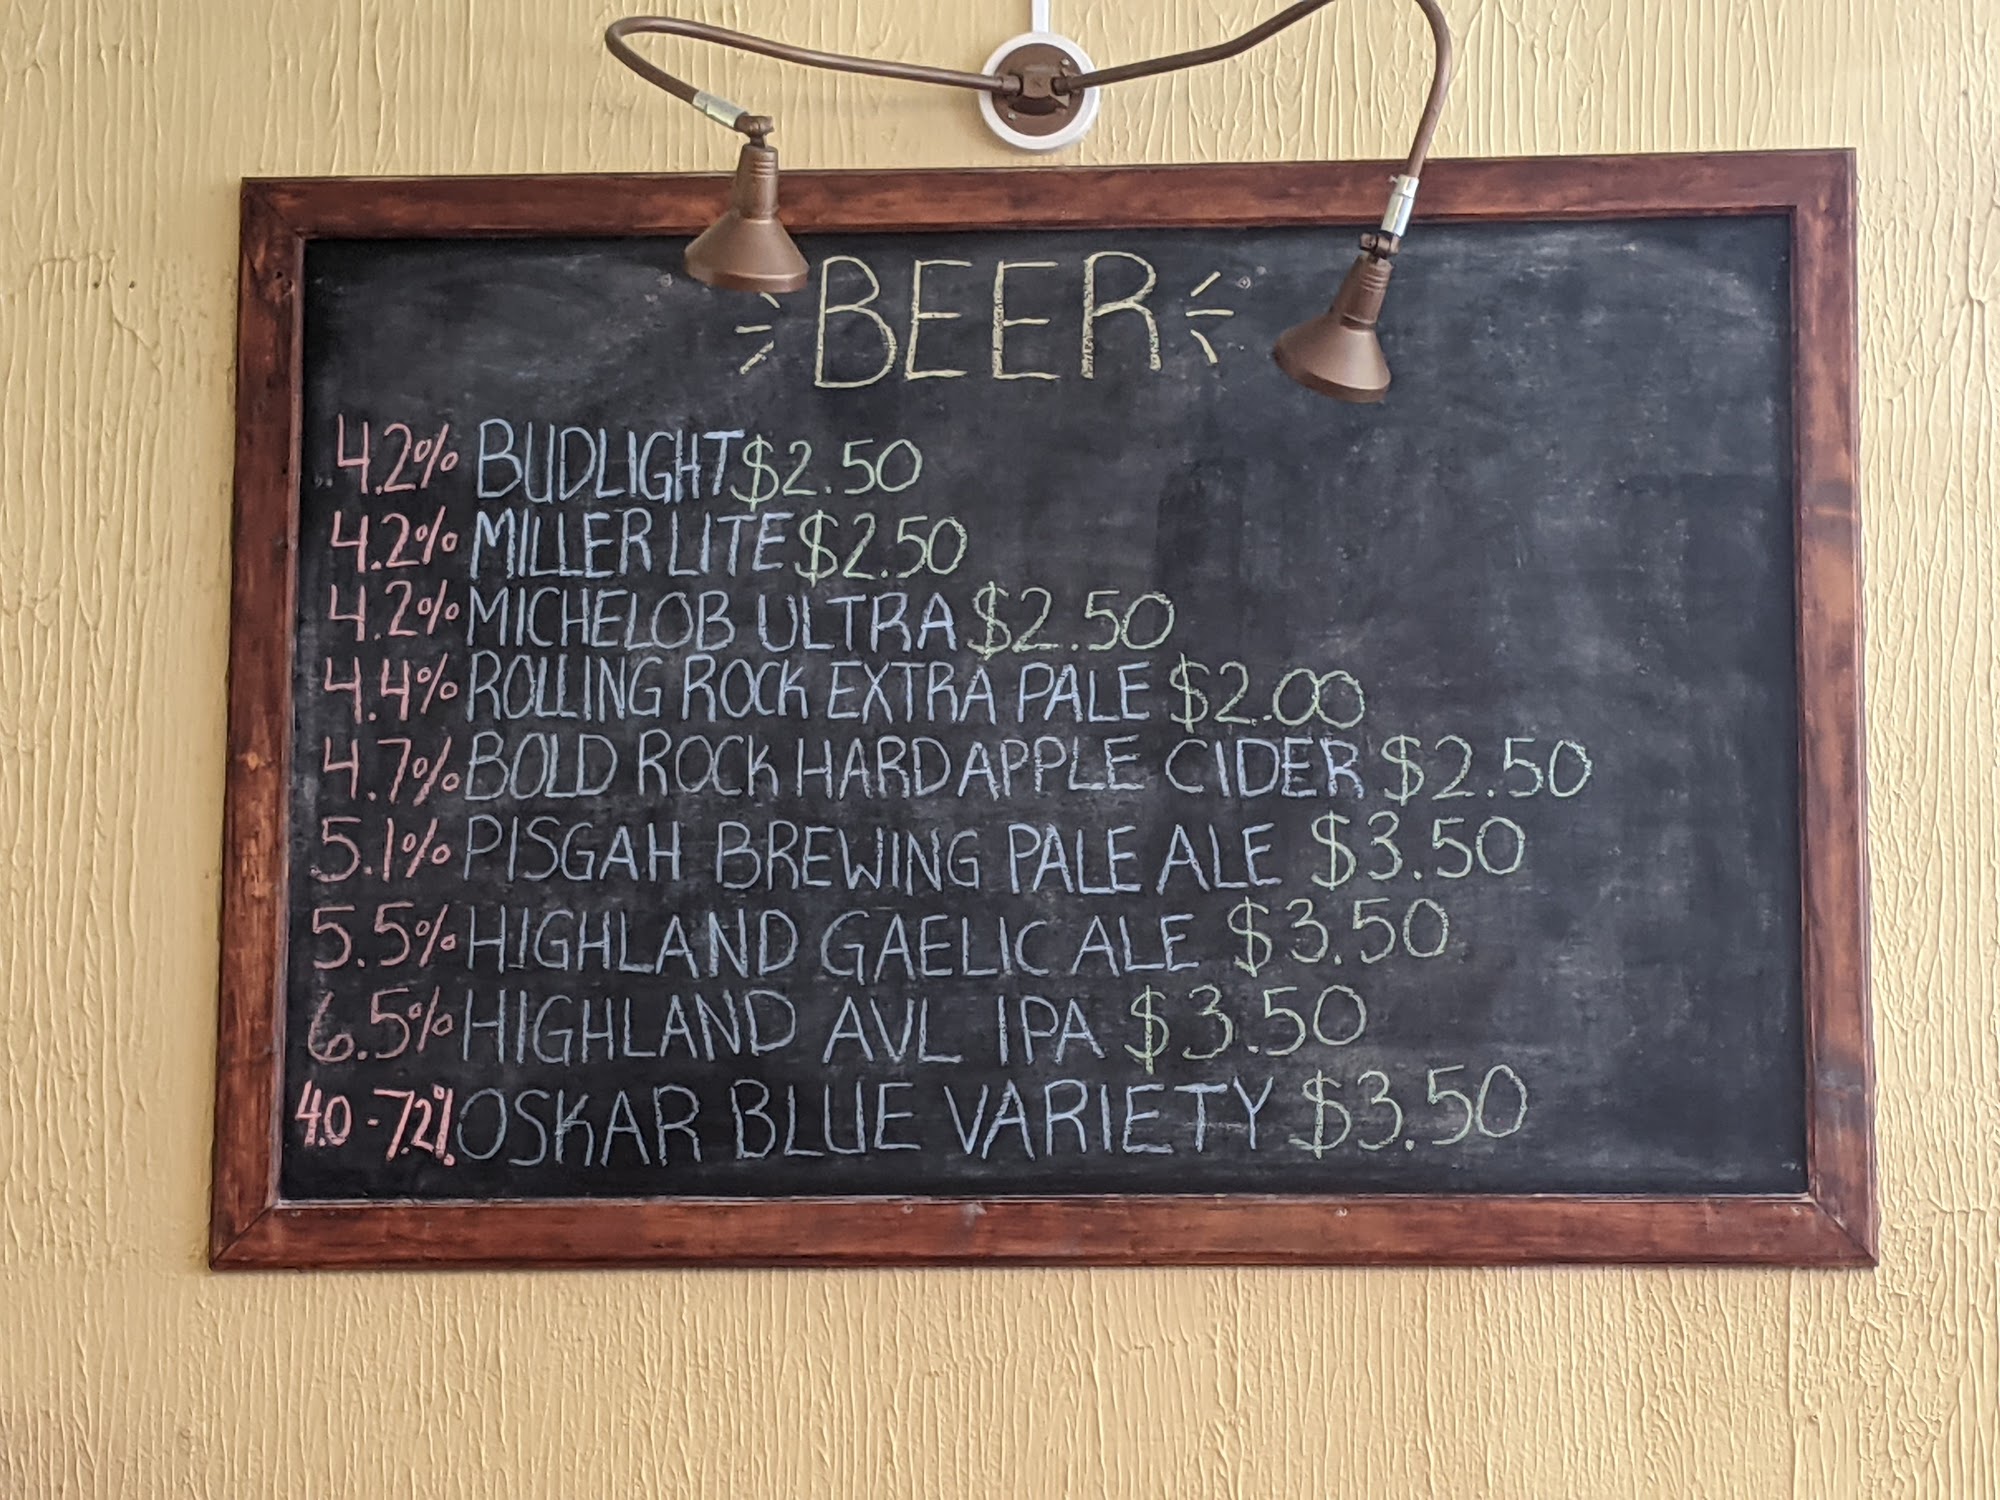 BEER
4.2% BUDLIGHT $2.50
4.2% MILLER LITE $2.50
4.2% MICHELOB ULTRA $2.50
4.4% ROLLING ROCK EXTRA PALE $2.00
4.7% BOLD ROCK HARD APPLE CIDER $2.50
5.1% PISGAH BREWING PALE ALE $3.50
5.5% HIGHLAND GAELIC ALE $3.50
6.5% HIGHLAND AVL IPA $3.50
4.0 - 7.2% OSKAR BLUE VARIETY $3.50